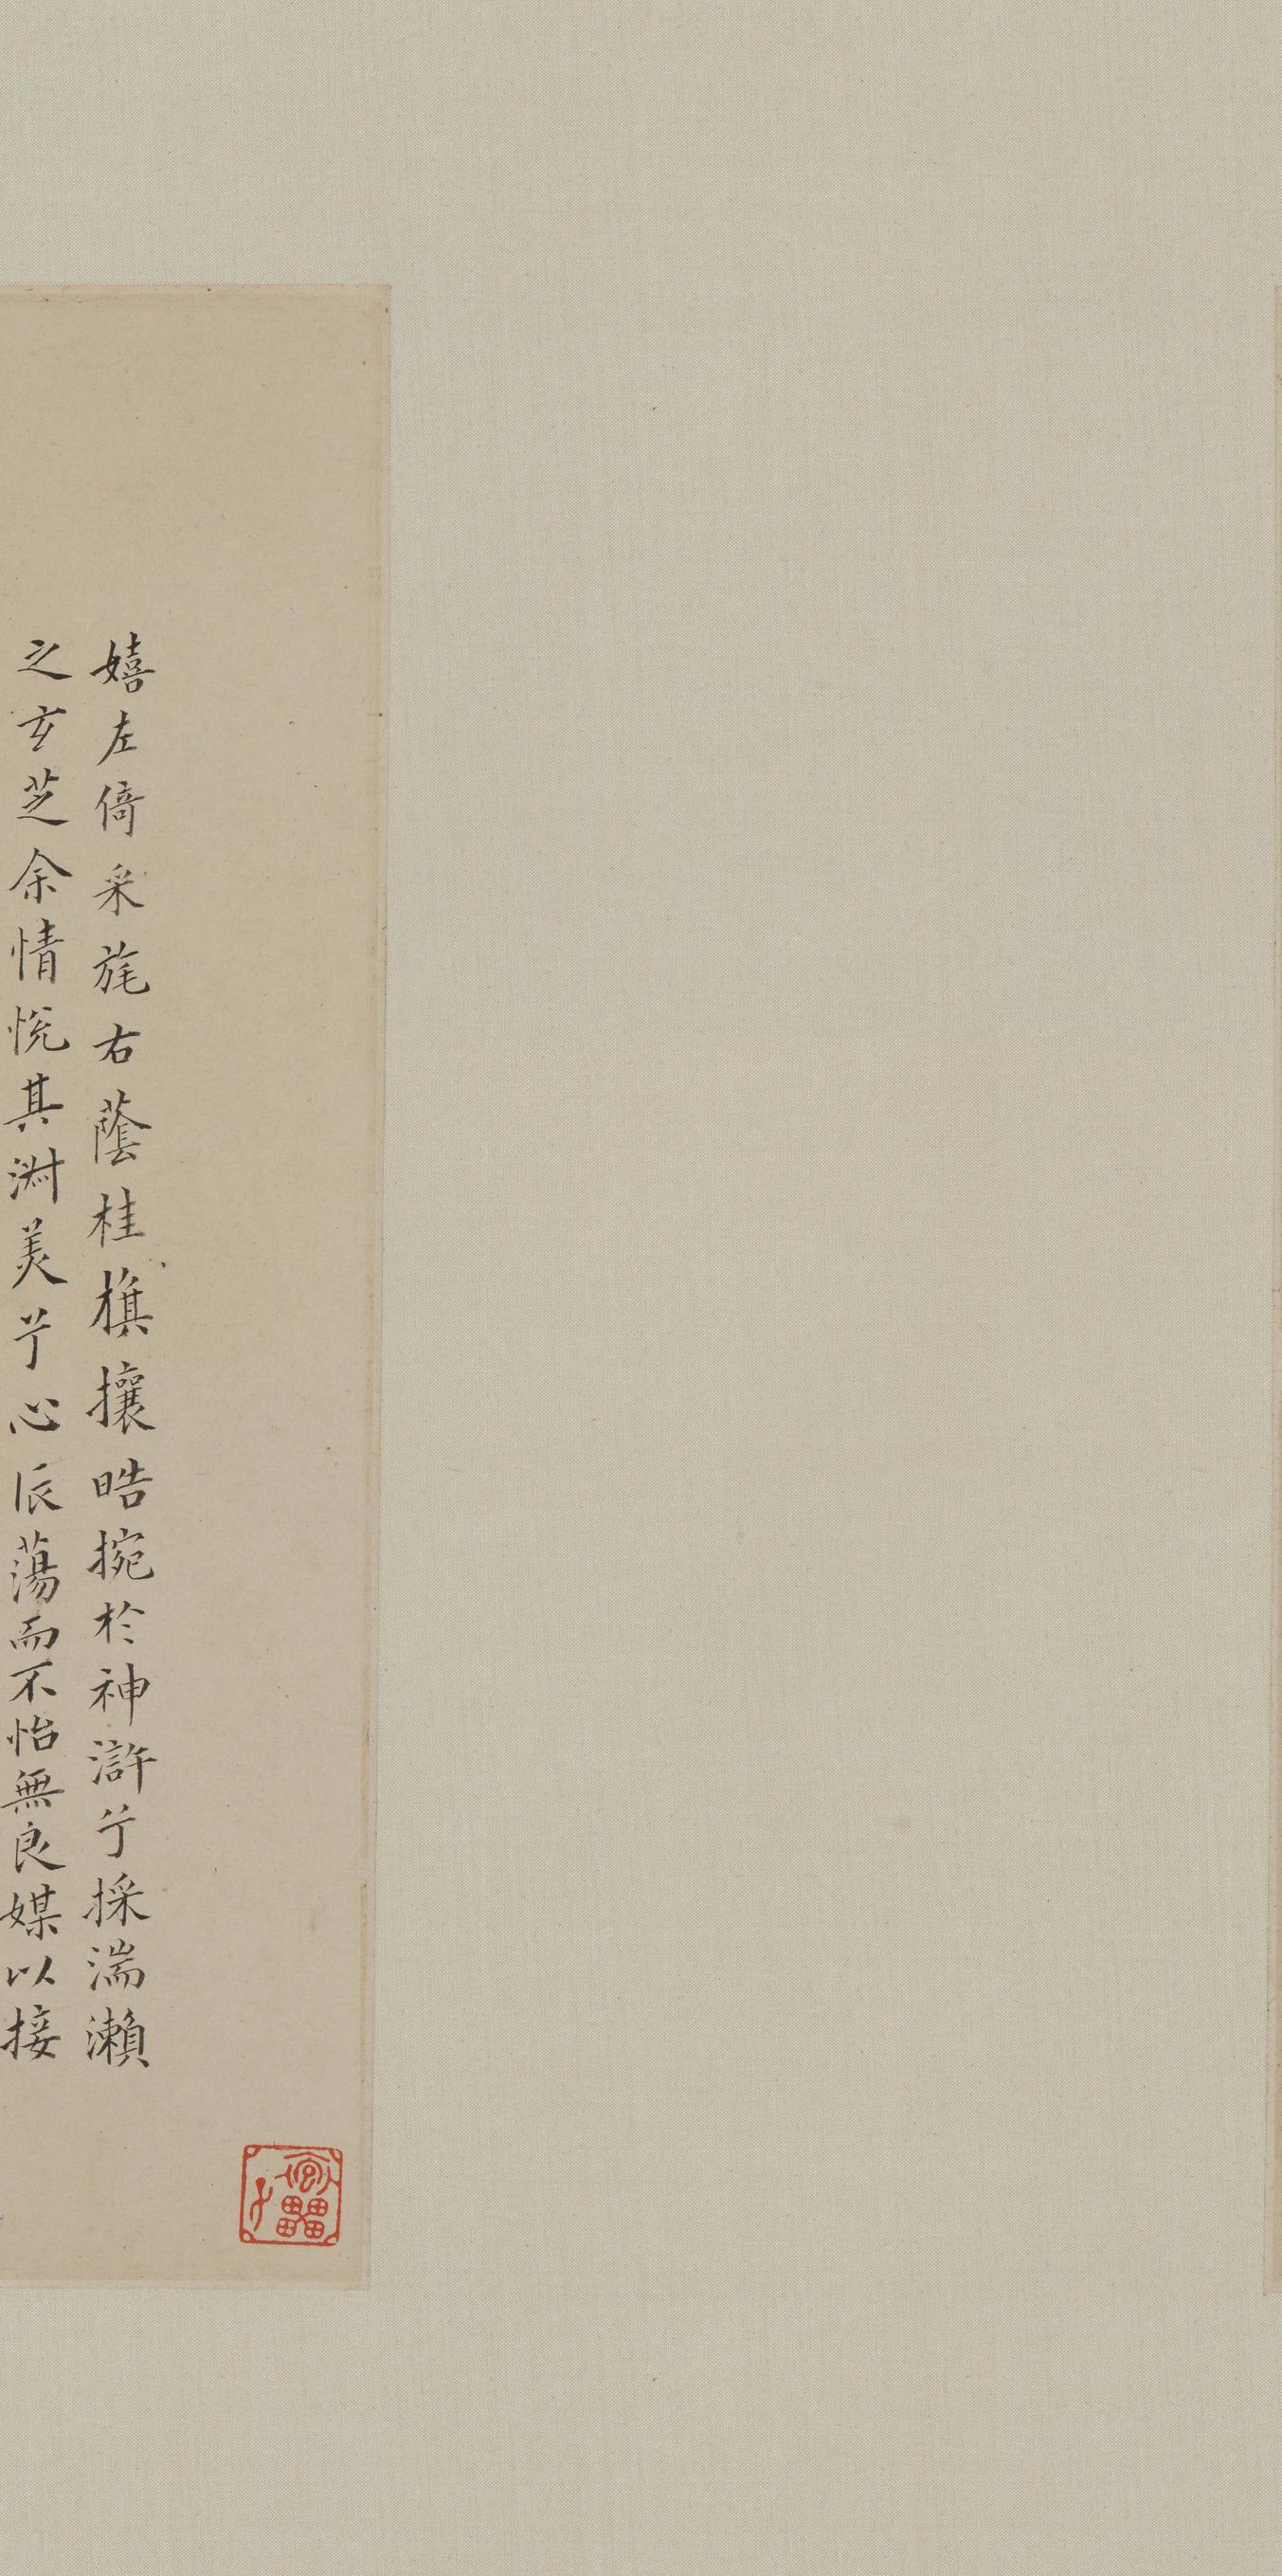 嬉左倚采旄右蔭桂旗攘晧捥於神滸兮採湍瀬
之玄芝余情悅其淑美兮心㫳蕩而不怡無良媒以接